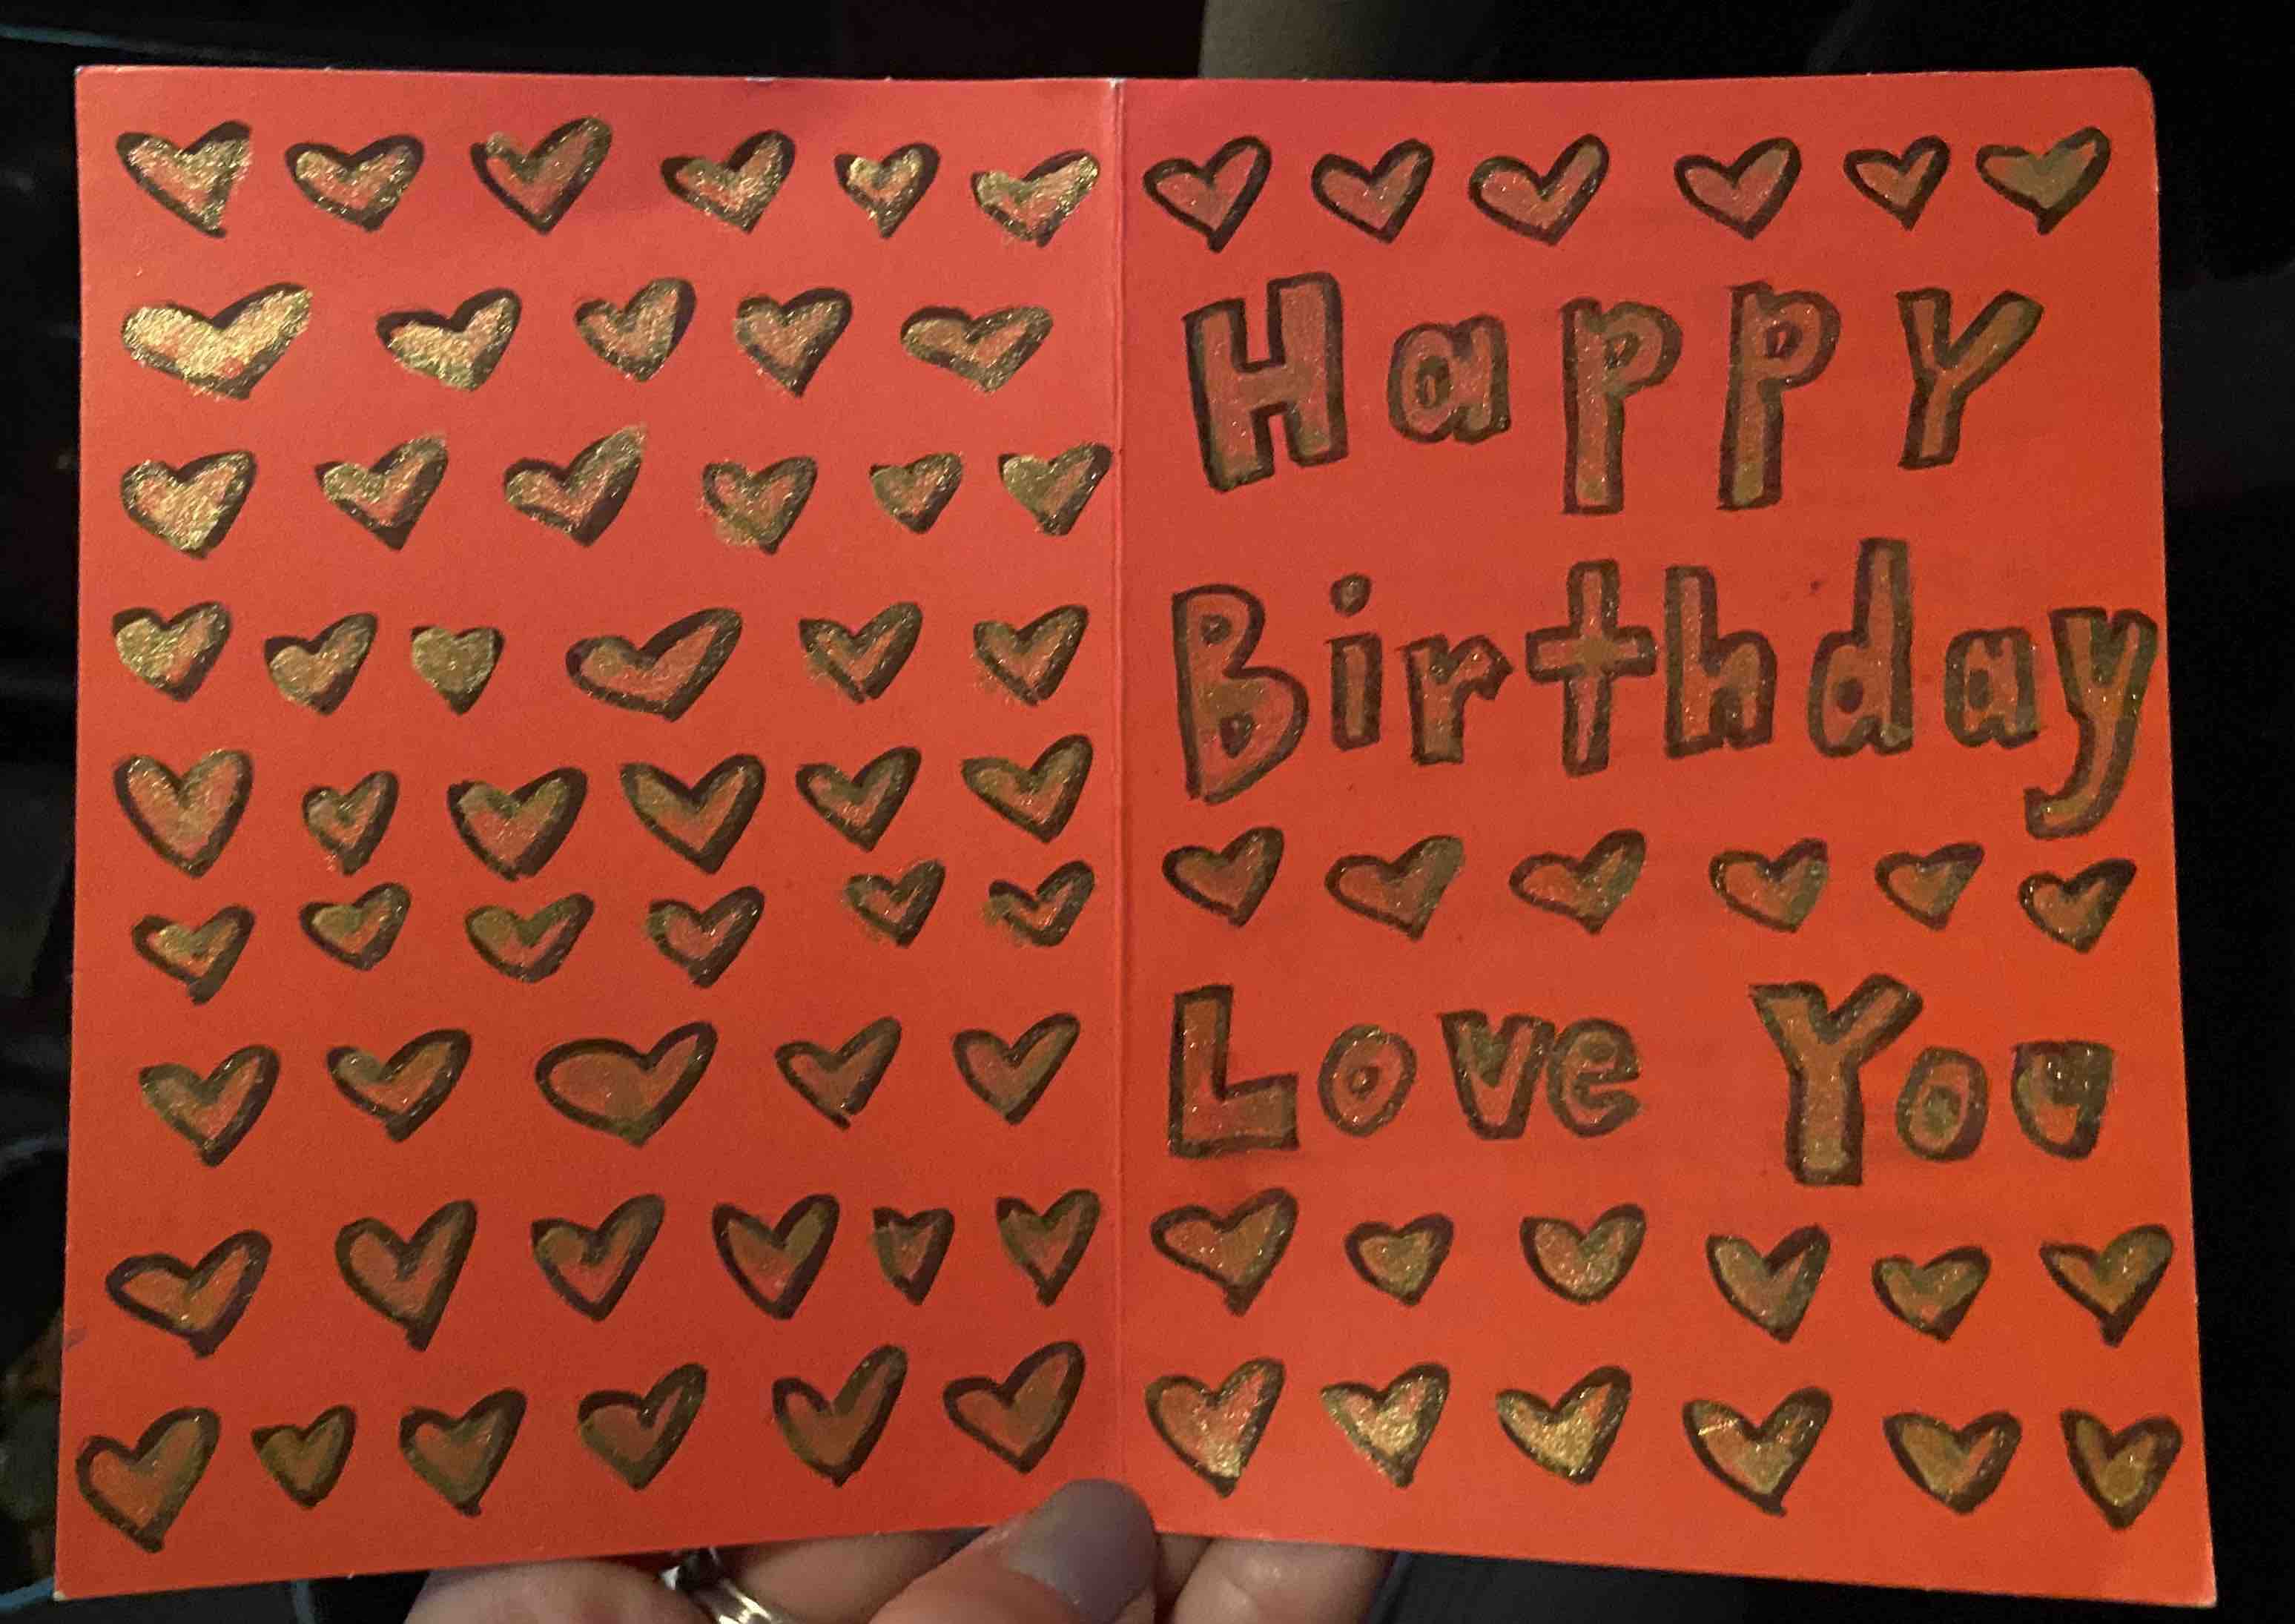 Happy
Birthday
Love You